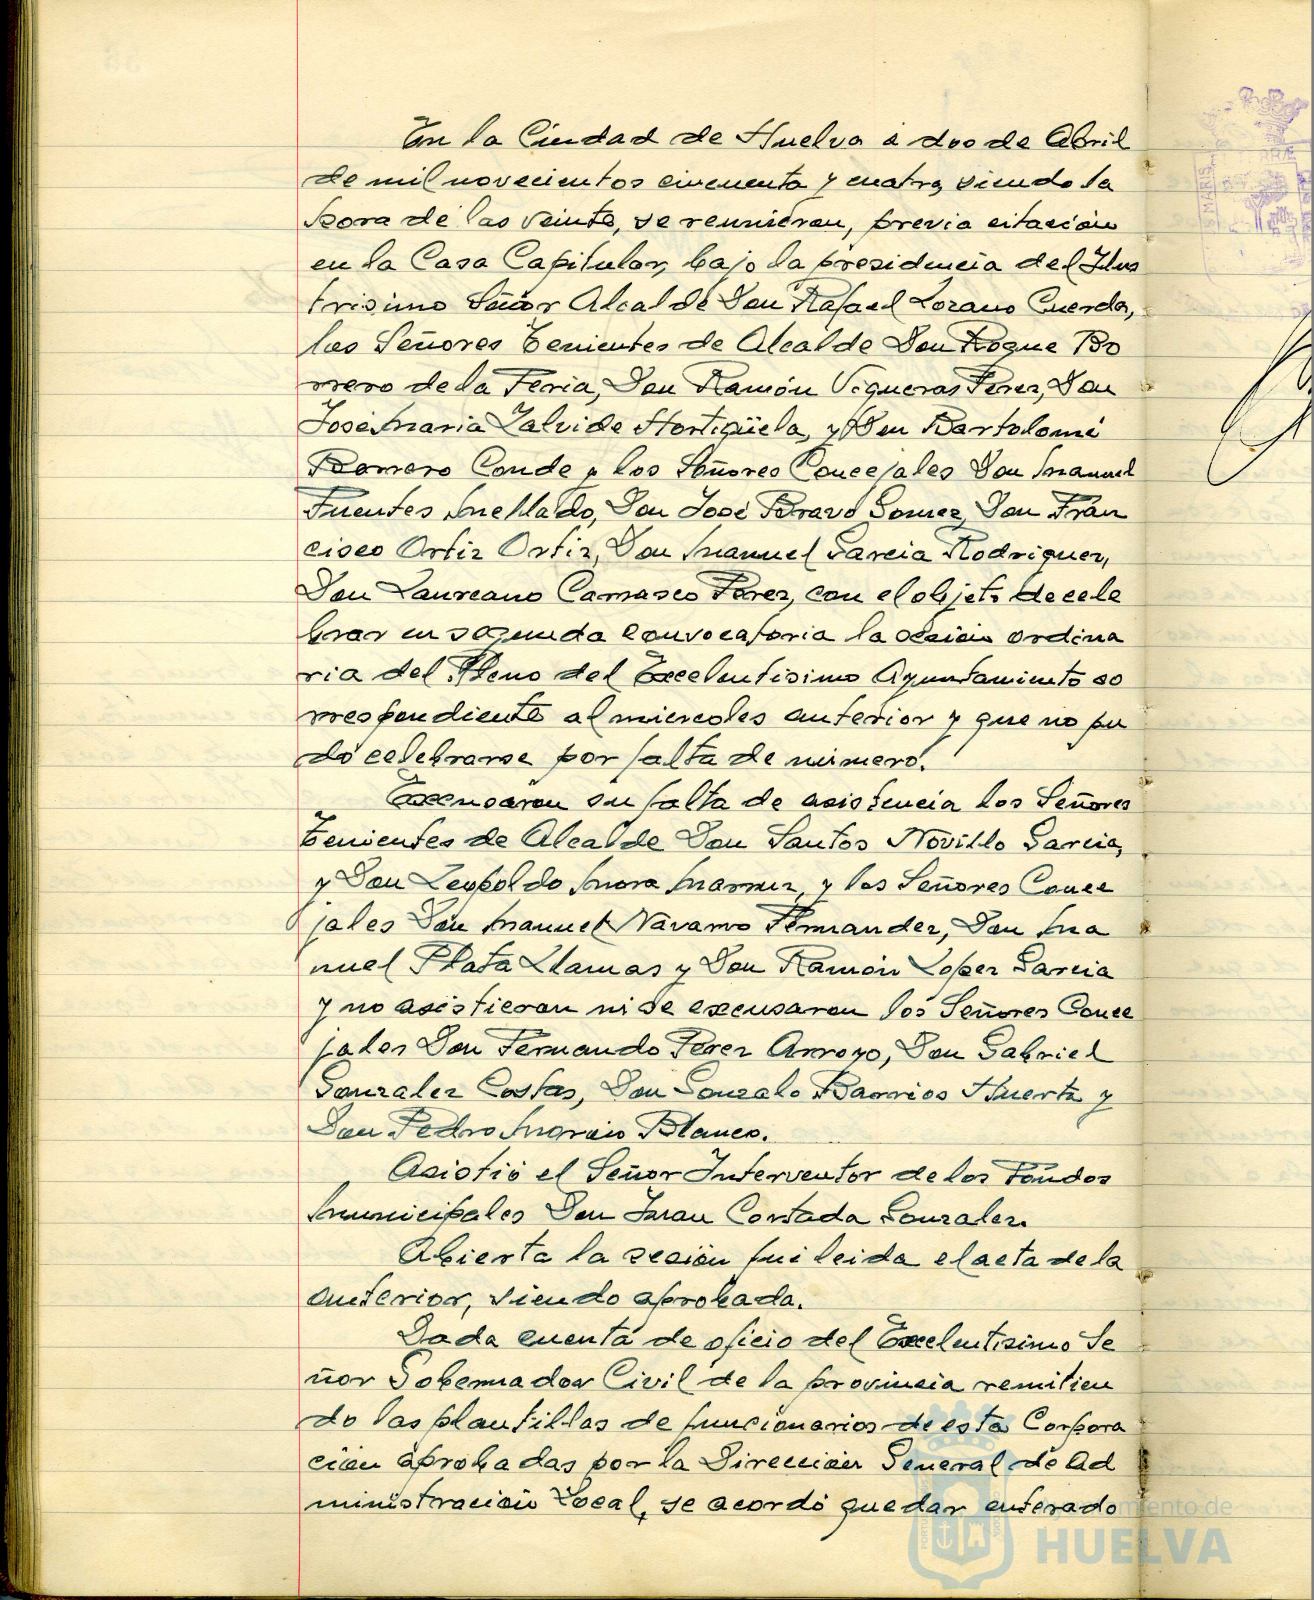 En la Ciudad de Huelva a dos de Abril
de mil novecientos cincuenta y cuatro, siendo la
hora de las veinte, se reunieron, previa citación
en la Casa Capitular, bajo la presidencia del Ilus
trisimo Señor Alcalde Don Rafael Lozano Cuerda,
los Señores Tenientes de Alcalde Don Roque Bo
rrero de la Feria, Don Ramón Vigueras Perez, Don
José Maria Zalvide Hortigüela, y Don Bartolomé
Romero Conde y los Señores Concejales Don Manuel
Fuentes Mellado, Don José Bravo Gomez, Don Fran
cisco Ortiz Ortiz, Don Manuel Garcia Rodriguez,
Don Laureano Carrasco Perez, con el objeto de cele
brar en segunda convocatoria la sesión ordina
ria del Pleno del Excelentisimo Ayuntamiento co
rrespondiente al miercoles anterior y que no pu
do celebrarse por falta de número.
Excusaron su falta de asistencia los Señores
Tenientes de Alcalde Don Santos Novillo Garcia,
y Don Leopoldo Mora, y los Señores Conce
jales Don Manuel Navarro Fernandez, Don Ma
nuel Plata Llamas y Don Ramón Lopez Garcia
y no asistieron ni se excusaron los Señores Conce
jales Don Fernando Perez Arroyo, Don Gabriel
Gonzalez Costas, Don Gonzalo Barrios Huerta y
Don Pedro Blanco.
Asistió el Señor Interventor de los Fondos
Municipales Don Juan Cortada Gonzalez.
Abierta la sesión fué leida el acta de la
anterior, siendo aprobada.
Dada cuenta de oficio del Excelentisimo Se
ñor Gobernador Civil de la provincia remitien
do las plantillas de funcionarios de esta Corpora
ción aprobadas por la Dirección General de Ad
ministración Local, se acordó quedar enterado
HUELVA